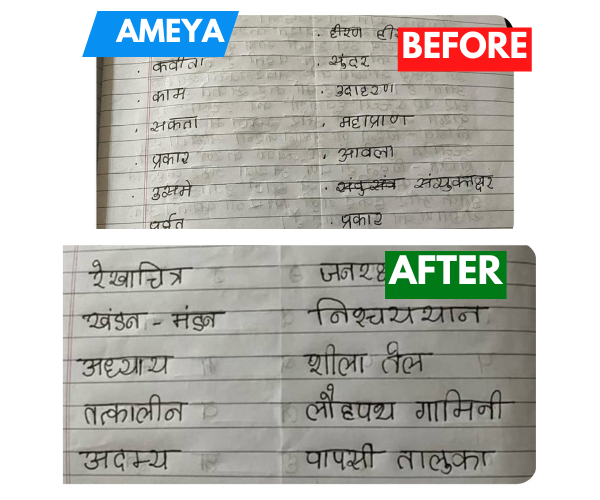 AMEYA
BEFORE
• हीरण
• कवीता • सुंदर
• काम • उदाहरण
• सकता • महाप्राण
• प्रकार • आवला
• उसमे संयुक्ताक्षर
पर्वत • प्रकार
AFTER
रेखाचित्र
खंडन - मंडन निश्चययान
अध्याय शीला तेल
तत्कालीन लौहपथ गामिनी
अदम्य पापसी तालुका